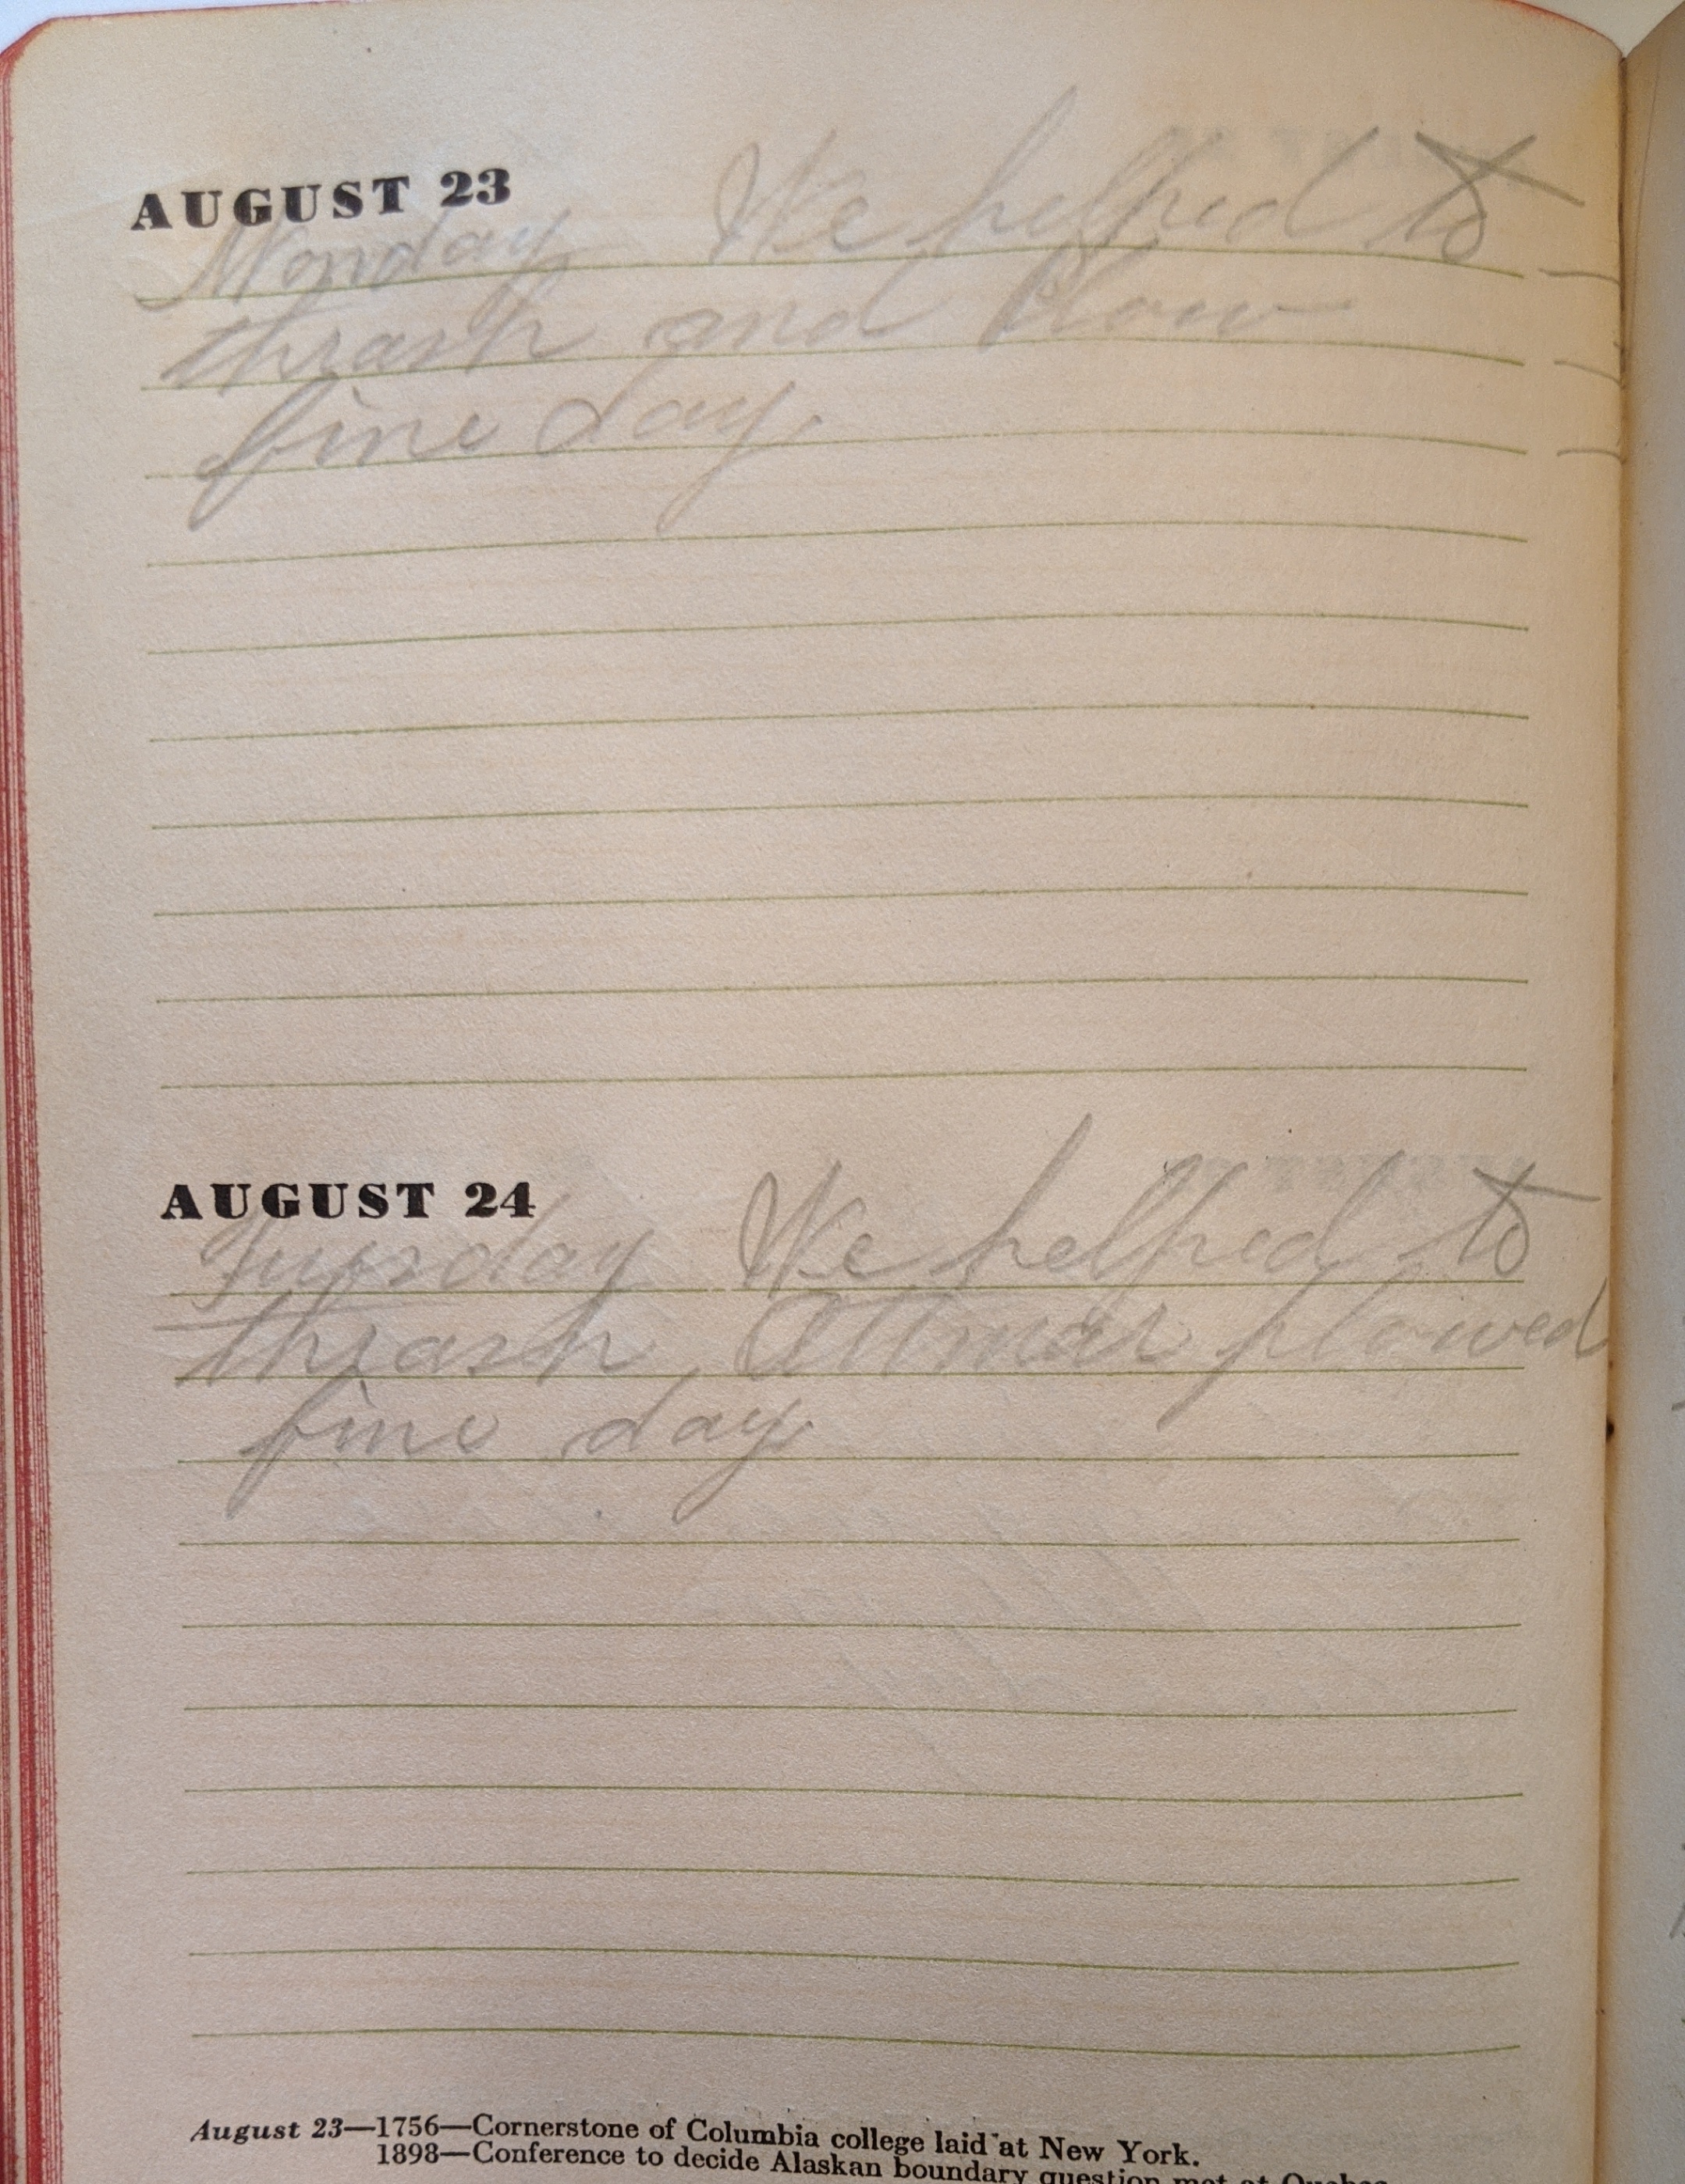 AUGUST 23
Monday We helped to
thrash and Plow
fine day.
AUGUST 24
Tuesday We helped to
thrash, Ottmar plowed
fine day.
August 23—1756—Cornerstone of Columbia college laid at New York.
1898—Conference to decide Alaskan boundary question met at Quebec